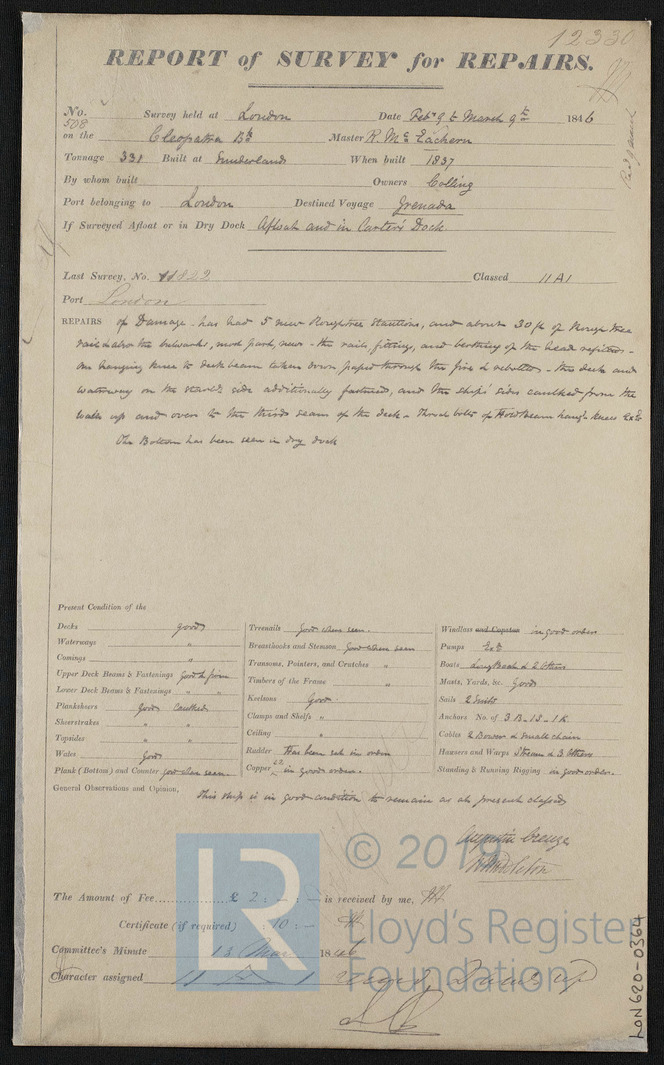 12330
REPORT of SURVEY for REPAIRS.
No. 508 Survey held at London Date Feby 9 to March 9th 1846
on the Cleopatra Bk Master R. Mc Eachern
Tonnage 331 Built at Sunderland When built 1837
By whom built Owners Colling
Port belonging to London Destined Voyage Grenada
If Surveyed Afloat or in Dry Dock Afloat and in Carter's Dock
Last Survey, No. 11822 Classed 11 A1
Port London
REPAIRS of Damage - has had 5 new Roughtree stantions, and about 30 ft of Rough tree
rail & also the bulwarks, most part, new - the rails, fitting, and berthing of the head refitted -
one hanging knee to deck beam taken down through the fire & rebolted - the deck and
waterway on the starbd side additionally fastened, and the ships sides caulked from the
wales up and over to the third seam of the deck - throat bolts of Hold beam hangg knees Exd
The Bottom has been seen in dry dock
Present Condition of the
Decks good
Waterways "
Comings "
Upper Deck Beams & Fastenings Good & firm
Lower Deck Beams & Fastenings " "
Planksheers Good Caulked
Sheerstrakes " "
Topsides " "
Wales Good
Plank (Bottom) and Counter good when seen.
Treenails Good when seen.
Breasthooks and Stemson Good when seen
Transoms, Pointers, and Crutches "
Timbers of the Frame "
Keelsons Good
Clamps and Shelfs "
Ceiling "
Rudder Has been seen in order
Copper in good order.
Windlass and Capstan in good order
Pumps Exd
Boats Long Boat & 2 Others
Masts, Yards, &c. Good
Sails 2 Suits
Anchors No. of 3 B. 1 S. 1 K
Cables 2 Bower & Small chain
Hawsers and Warps Stream & 3 Others
Standing & Running Rigging in good order.
General Observations and Opinion, This ship is in good condition to remain as at present classed
Augustin Creuze
The Amount of Fee £ 2 : - : - is received by me,
Certificate (if required) : 10 : -
Committee's Minute 13 Mar 1846
Character assigned
© 2019
LR
Lloyd's Register
Foundation
LON620-0364